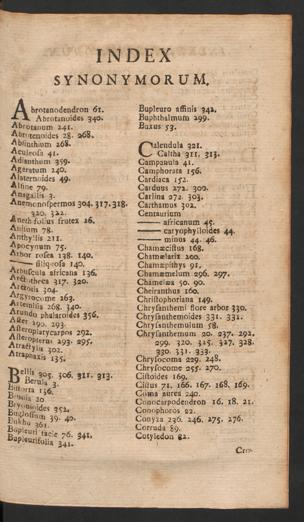 INDEX
SYNONYMORUM.
Abrotanodendron 61.
Abrotanoides 340.
Abrotanum 241.
Abrotanoides 28. 268.
Absinthium 268.
Aculeosa 41.
Adianthum 359.
Ageratum 240.
Alaternoides 49.
Alsine 79.
Anagallis 3.
Anemonospermos 304. 317. 318.
320. 322.
Anethifolius frutex 26.
Anisum 78.
Anthyllis 211.
Apocynum 75.
Arbor rosea 138. 140.
—— siliquosa 140.
Arbuscula africana 136.
Arctotheca 317. 320.
Arctotis 304.
Argyrocome 263.
Artemisia 268. 340.
Arundo phalaroides 356.
Aster 290. 293.
Asteroplatycarpos 292.
Asteropterus 293. 295.
Atractylis 302.
Atraphaxis 135.
Bellis 305. 306. 311. 313.
Berula 3.
Bistorta 136.
Betula 20
Bryonioides 352.
Buglossum 39. 40.
Bukhu 361.
Bupleuri facie 76. 341.
Bupleurifolia 341.
Bupleuro affinis 342.
Buphthalmum 299.
Buxus 53.
Calendula 321.
Caltha 311. 313.
Campanula 41.
Camphorata 156.
Cardiaca 152.
Carduus 272. 300.
Carlina 272. 303.
Carthamus 302.
Centaurium
—— africanum 45.
—— caryophylloides 44.
—— minus 44. 46.
Chamæcistus 168.
Chamælarix 200.
Chamæpithys 91.
Chamæmelum 296. 297.
Chamelæa 50. 90.
Cheiranthus 160.
Christophoriana 149.
Chrysanthemi flore arbor 330.
Chrysanthemoides 331. 332.
Chrysanthemulum 58.
Chrysanthemum 20. 237. 292.
299. 320. 325. 327. 328.
330. 331. 333.
Chrysocoma 229. 248.
Chrysocome 255. 270.
Cistoides 169.
Cistus 71. 166. 167. 168. 169.
Coma aurea 240.
Conocarpodendron 16. 18. 21.
Conophoros 22.
Conyza 236. 246. 275. 276.
Corruda 89.
Cotyledon 82.